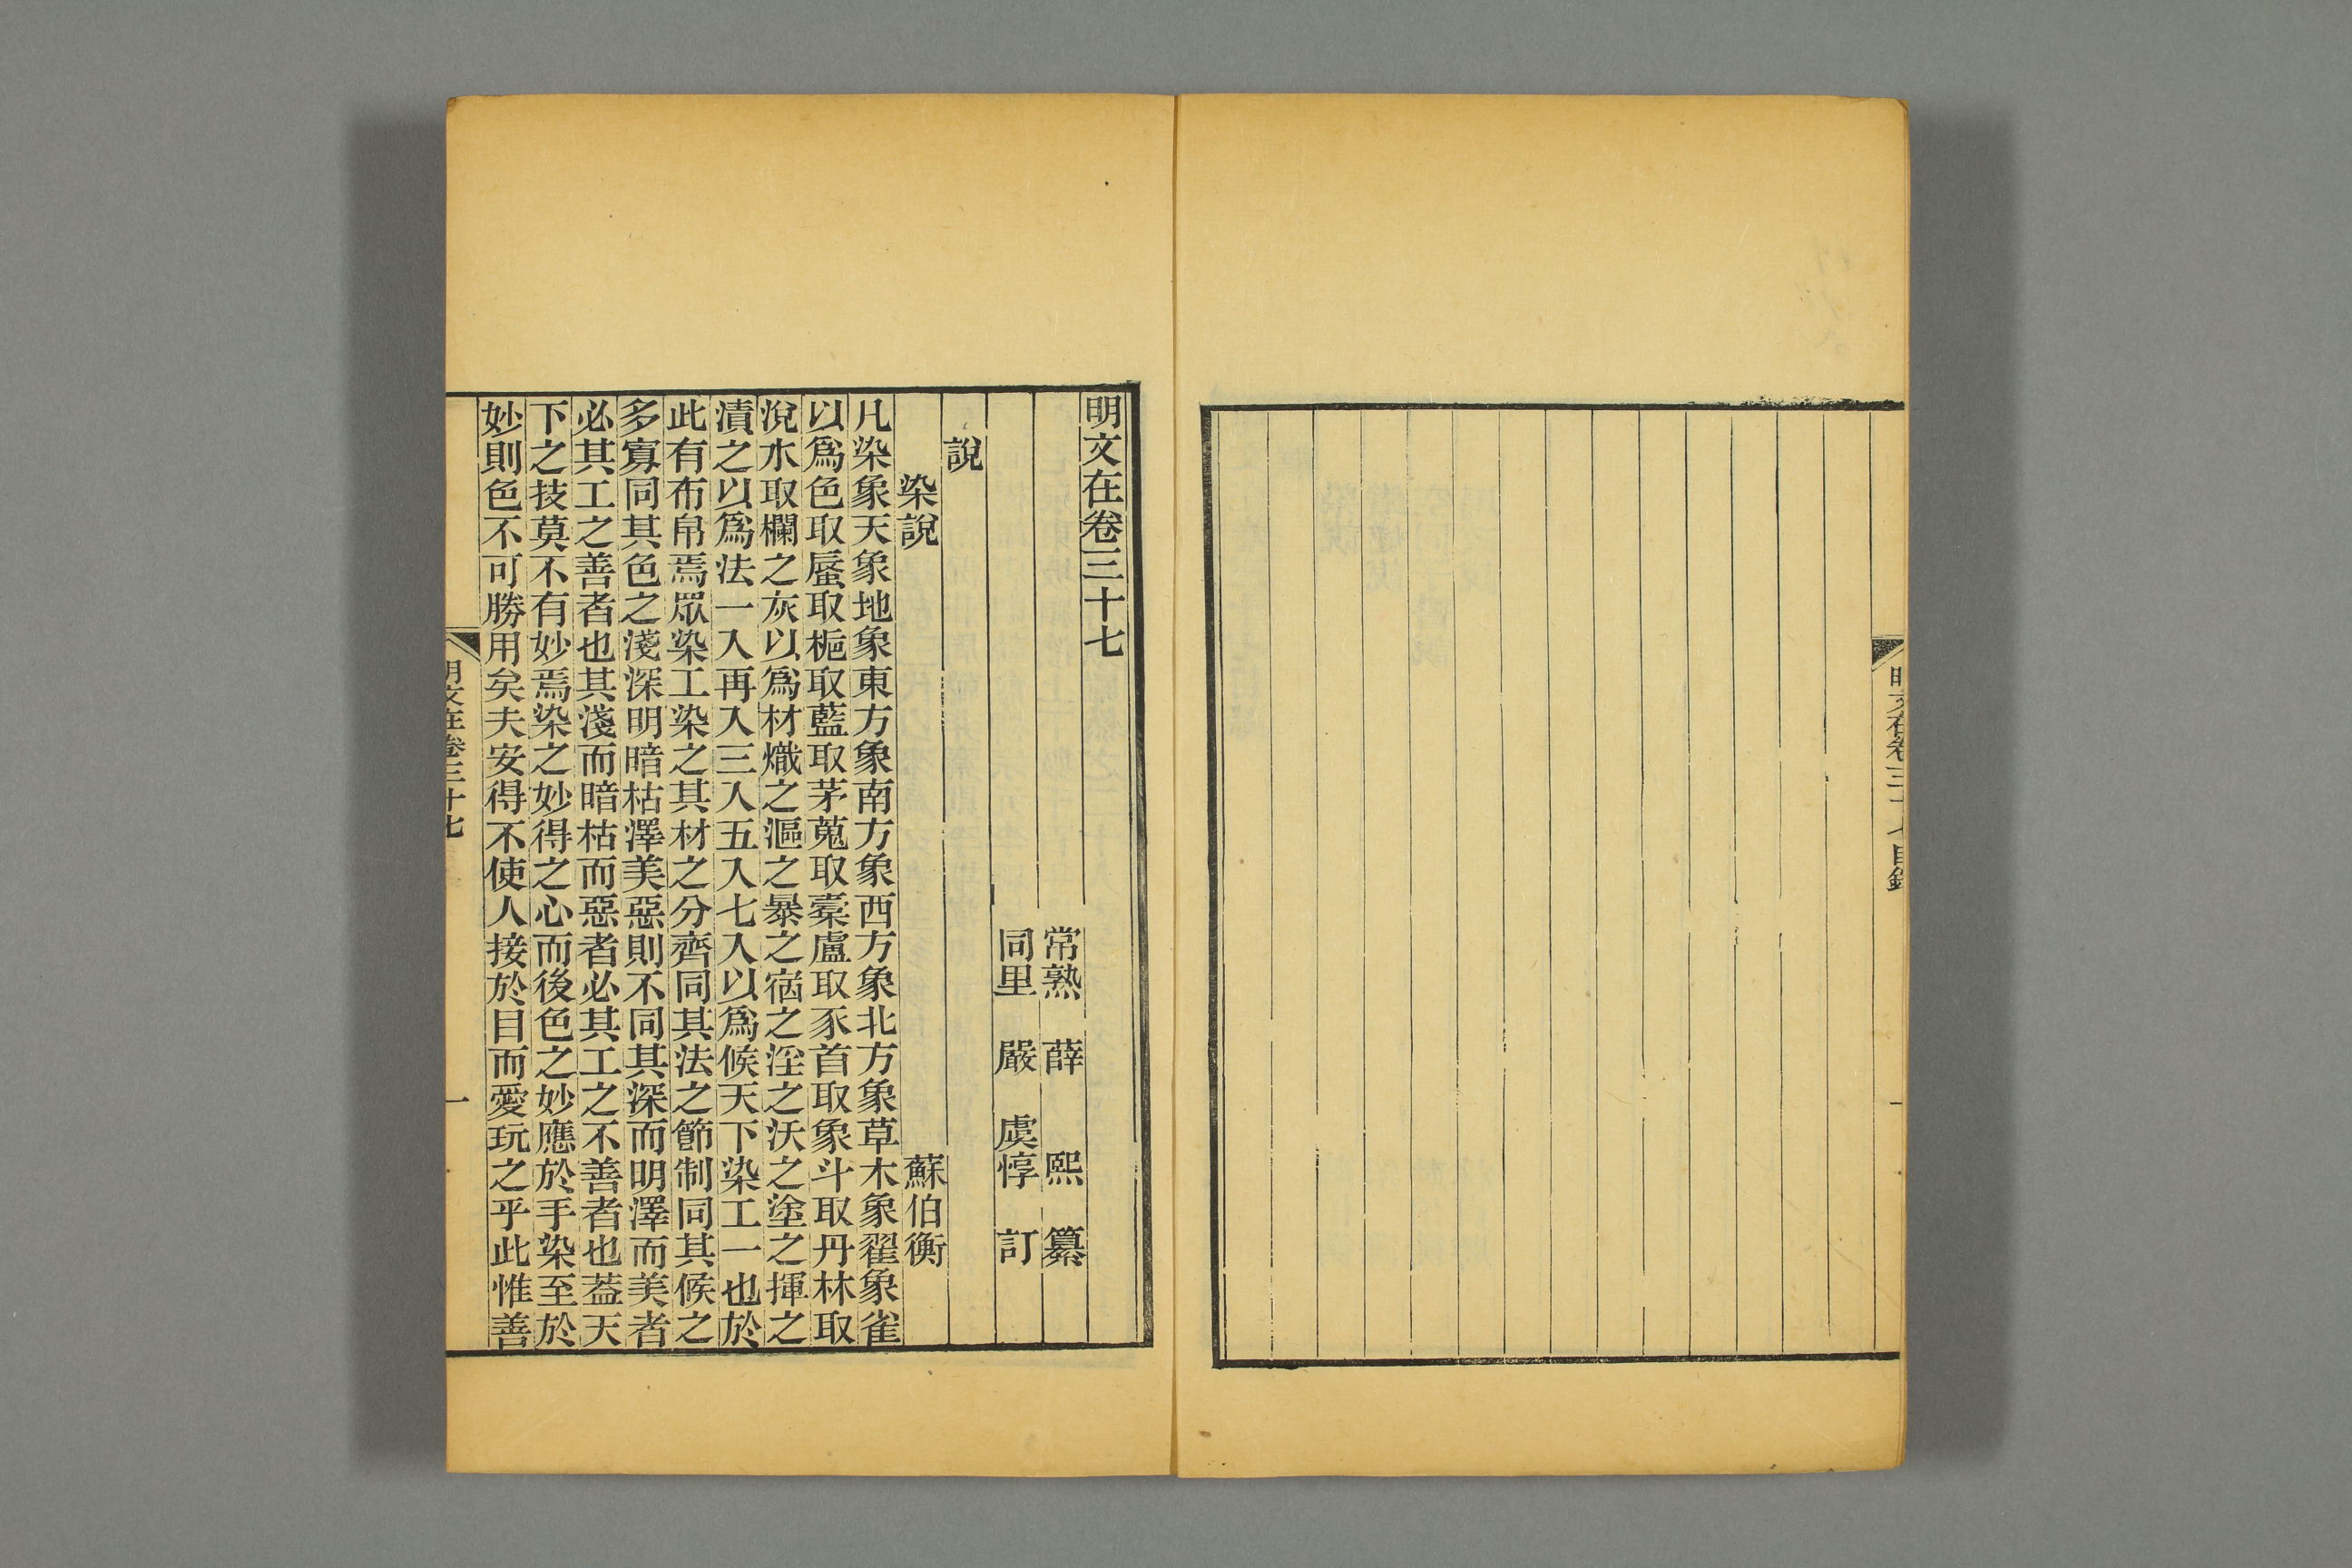 明文在卷三十七目錄
一
明文在卷三十七
常熟 薛 熙 纂
同里 嚴 虞惇 訂
說
染說 蘇伯衡
凡染象天象地象東方象南方象西方象北方象草木象翟象雀
以爲色取蜃取梔取藍取茅蒐取槖盧取豕首取象斗取丹林取
涗水取欄之灰以爲材熾之漚之暴之宿之淫之沃之塗之揮之
漬之以爲法一入再入三入五入七入以爲候天下染工一也於
此有布帛焉眾染工染之其材之分齊同其法之節制同其候之
多寡同其色之淺深明暗枯澤美惡則不同其深而明澤而美者
必其工之善者也其淺而暗枯而惡者必其工之不善者也葢天
下之技莫不有妙焉染之妙得之心而後色之妙應於手染至於
妙則色不可勝用矣夫安得不使人接於目而愛玩之乎此惟善
明文在卷三十七
一